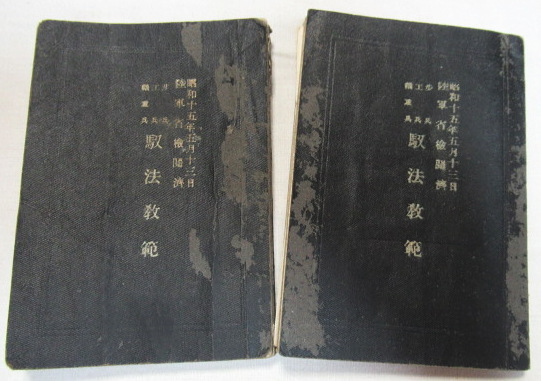 昭和十五年五月十三日
陸軍省檢閲濟
步兵
工兵
輜重兵
馭法教範
昭和十五年五月十三日
陸軍省檢閲濟
步兵
工兵
輜重兵
馭法教範